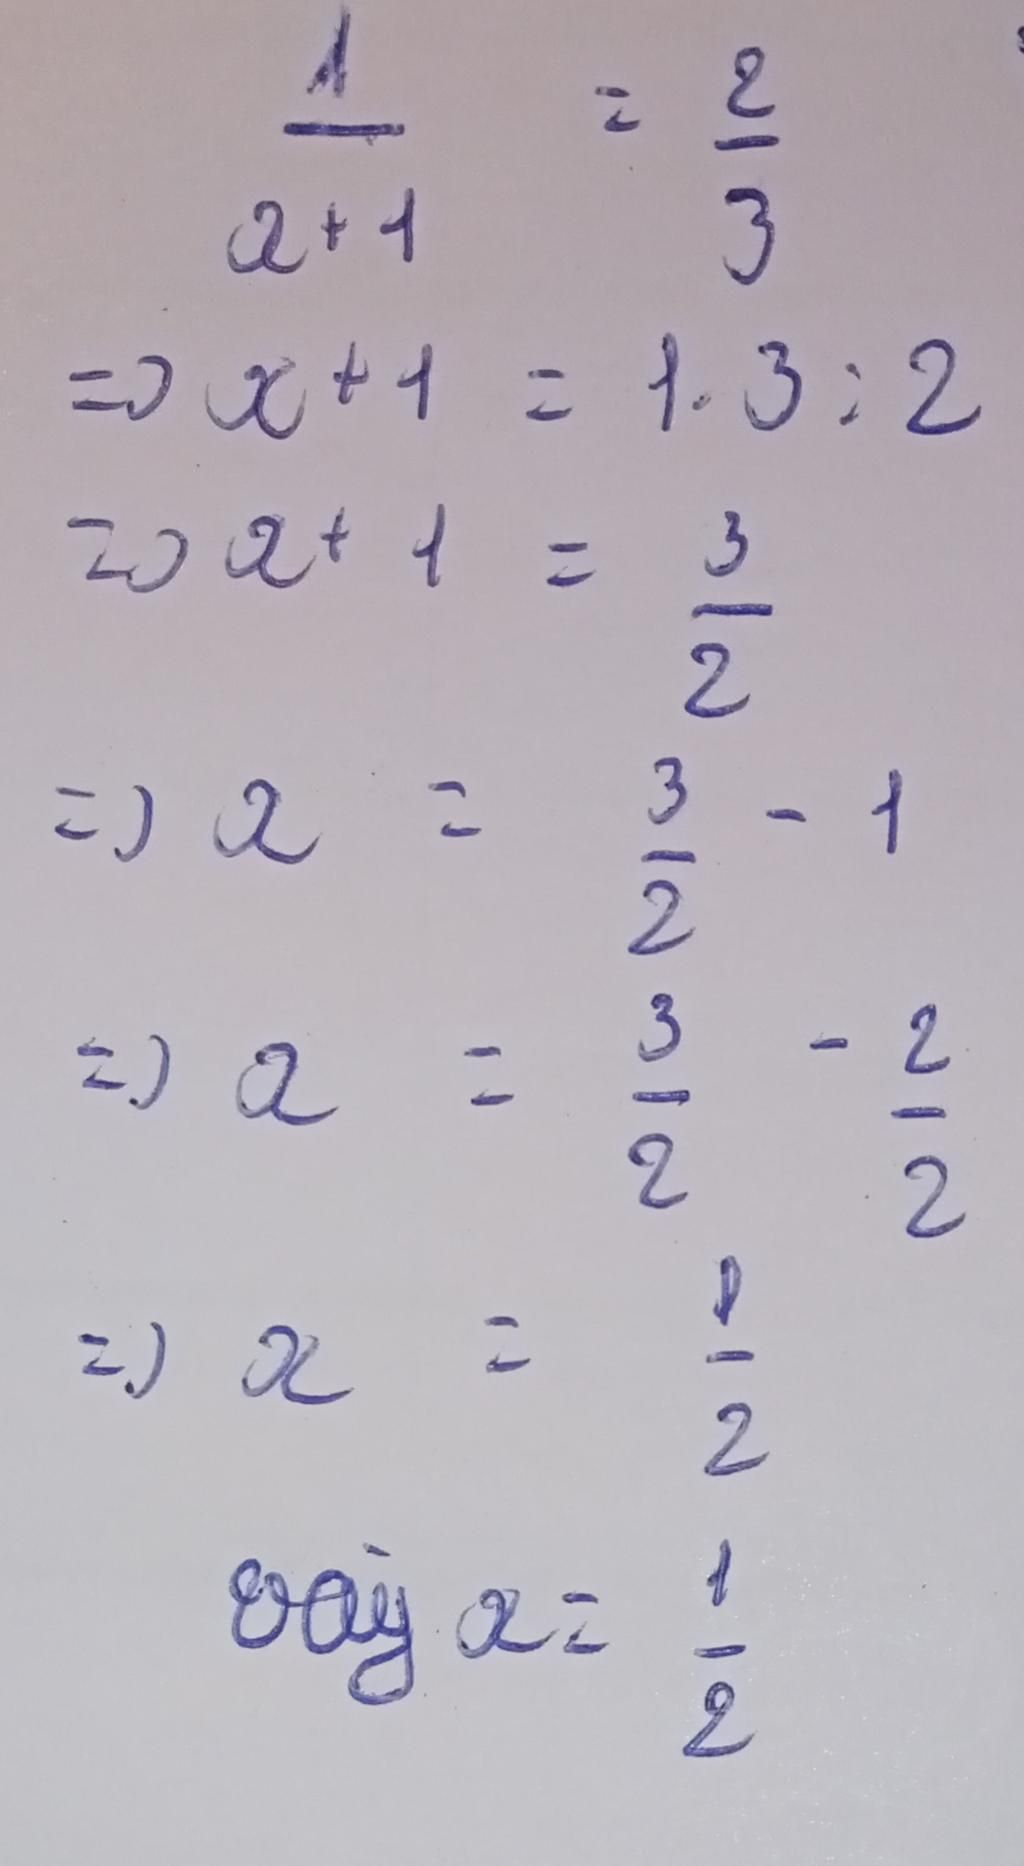 1/(x+1) = 2/3
=> x+1 = 1.3:2
=> x+1 = 3/2
=> x = 3/2 - 1
=> x = 3/2 - 2/2
=> x = 1/2
vậy x = 1/2